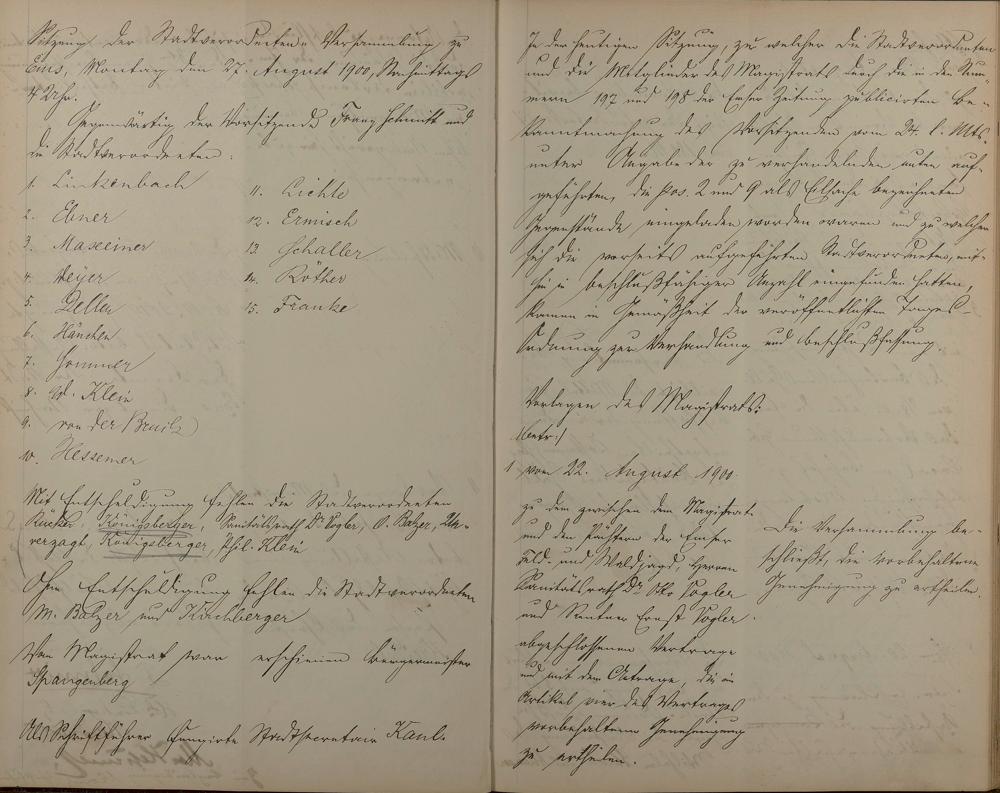 Sitzung der Stadtverordneten-Versammlung zu
Ems, Montag den 27. August 1900, Nachmittags
4 Uhr.
Gegenwärtig der Vorsitzende Franz Schmitt und
die Stadtverordneten:
1. Linkenbach
2. Ebner
3. Maxeiner
4. Meyer
5. Heller
6. Hänchen
7. Sommer
8. Wl. Klein
9. von der Bruck
10. Hessemer
11. Lichte
12. Ermisch
13. Schaller
14. Röther
15. Franke
Mit Entschuldigung fehlen die Stadtverordneten
Rücker, Königsberger, Sanitätsrath Dr. Vogler, O. Balzer, Un-
verzagt, Königsberger, Phil. Klein
Ohne Entschuldigung fehlen die Stadtverordneten
M. Balzer und Kirchberger
Vom Magistrat war erschienen Bürgermeister
Spangenberg
Als Schriftführer fungirte Stadtsecretair Kaul.
In der heutigen Sitzung, zu welcher die Stadtverordneten
und die Mitglieder des Magistrats durch die in den Num-
mern 197 und 198 der Emser Zeitung publicirten Be-
kanntmachung des Vorsitzenden vom 24. l. Mts.
unter Angabe der zu verhandelnden unten auf-
geführten, die pos. 2 und 9 als Eilsache bezeichneten
Gegenstände eingeladen worden waren und zu welcher
sich die vorseits aufgeführten Stadtverordneten, mit-
hin in beschlußfähiger Anzahl eingefunden hatten,
kamen in Gemäßheit der veröffentlichten Tages-
Ordnung zur Verhandlung und Beschlußfassung.
Vorlagen des Magistrats:
/betr:/
1 vom 22. August 1900
zu dem zwischen dem Magistrat
und den Pächtern der Emser
Feld- und Waldjagd, Herren
Sanitätsrath Dr. Otto Vogler
und Rentner Ernst Vogler
abgeschlossenen Vertrage
und mit dem Antrage, die in
Artikel vier des Vertrages
vorbehaltene Genehmigung
zu ertheilen.
Die Versammlung be-
schließt, die vorbehaltene
Genehmigung zu ertheilen.